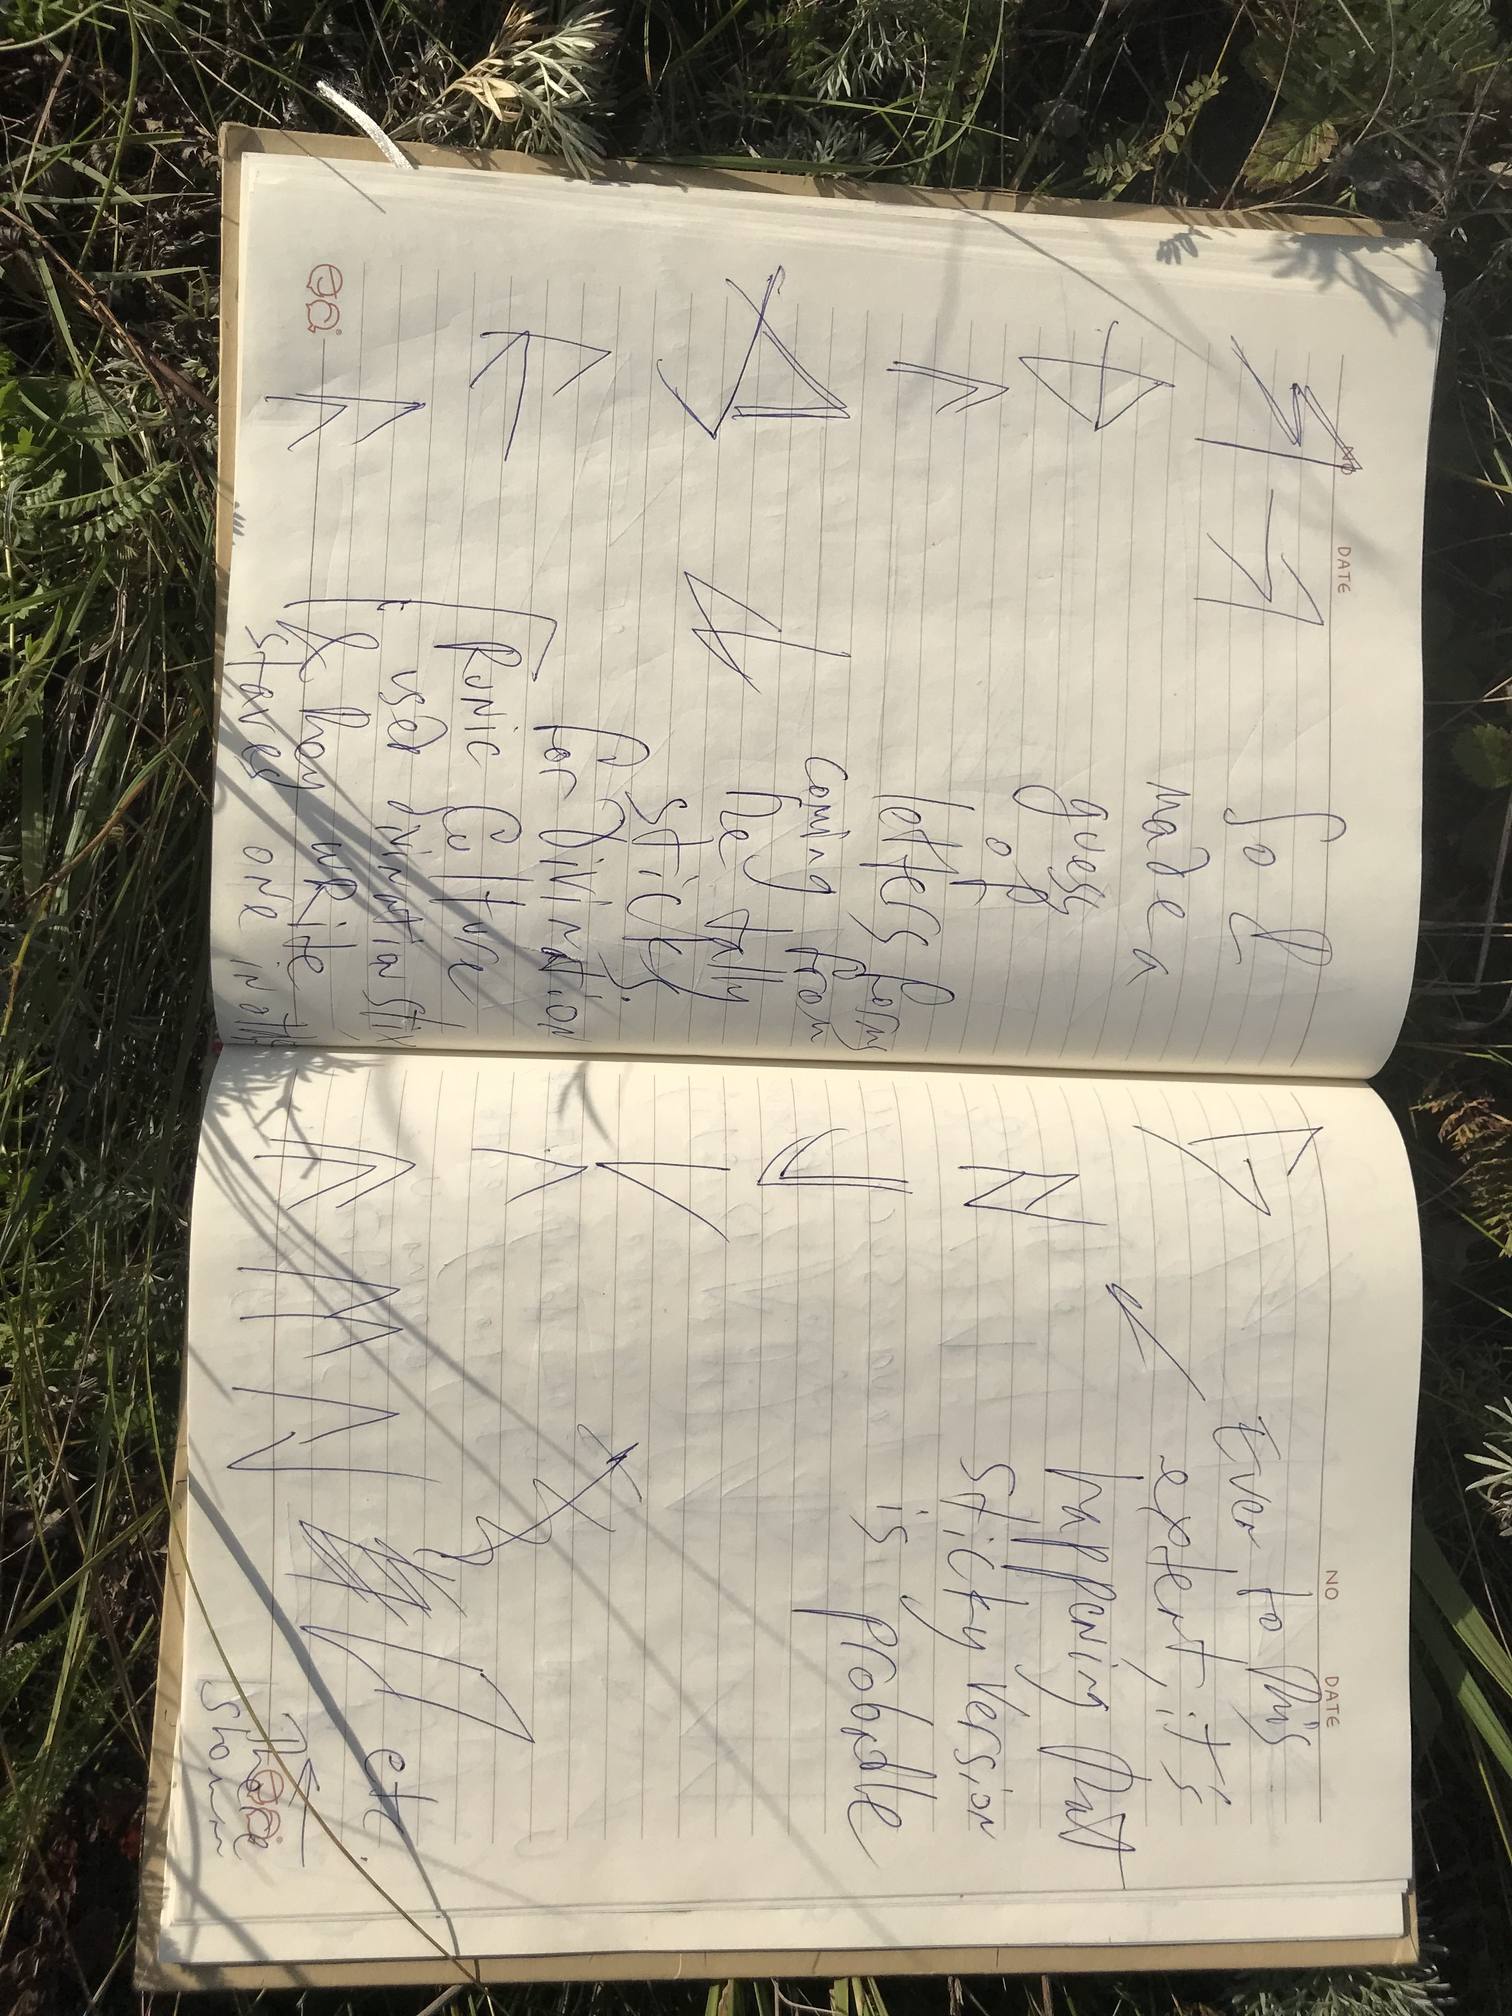 NO
DATE
So I
made a
guess
of
letters forms
coming from
the tally
sticks.
for Divination
Runic Culture
used divination stix
& they wRite
staves one in other
NO DATE
Even to this
extent, it's
happening that
sticky version
is probable
etc.
those
shown